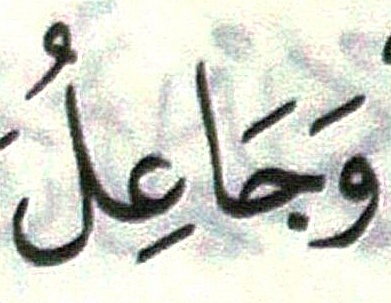 وَجَاعِلُ